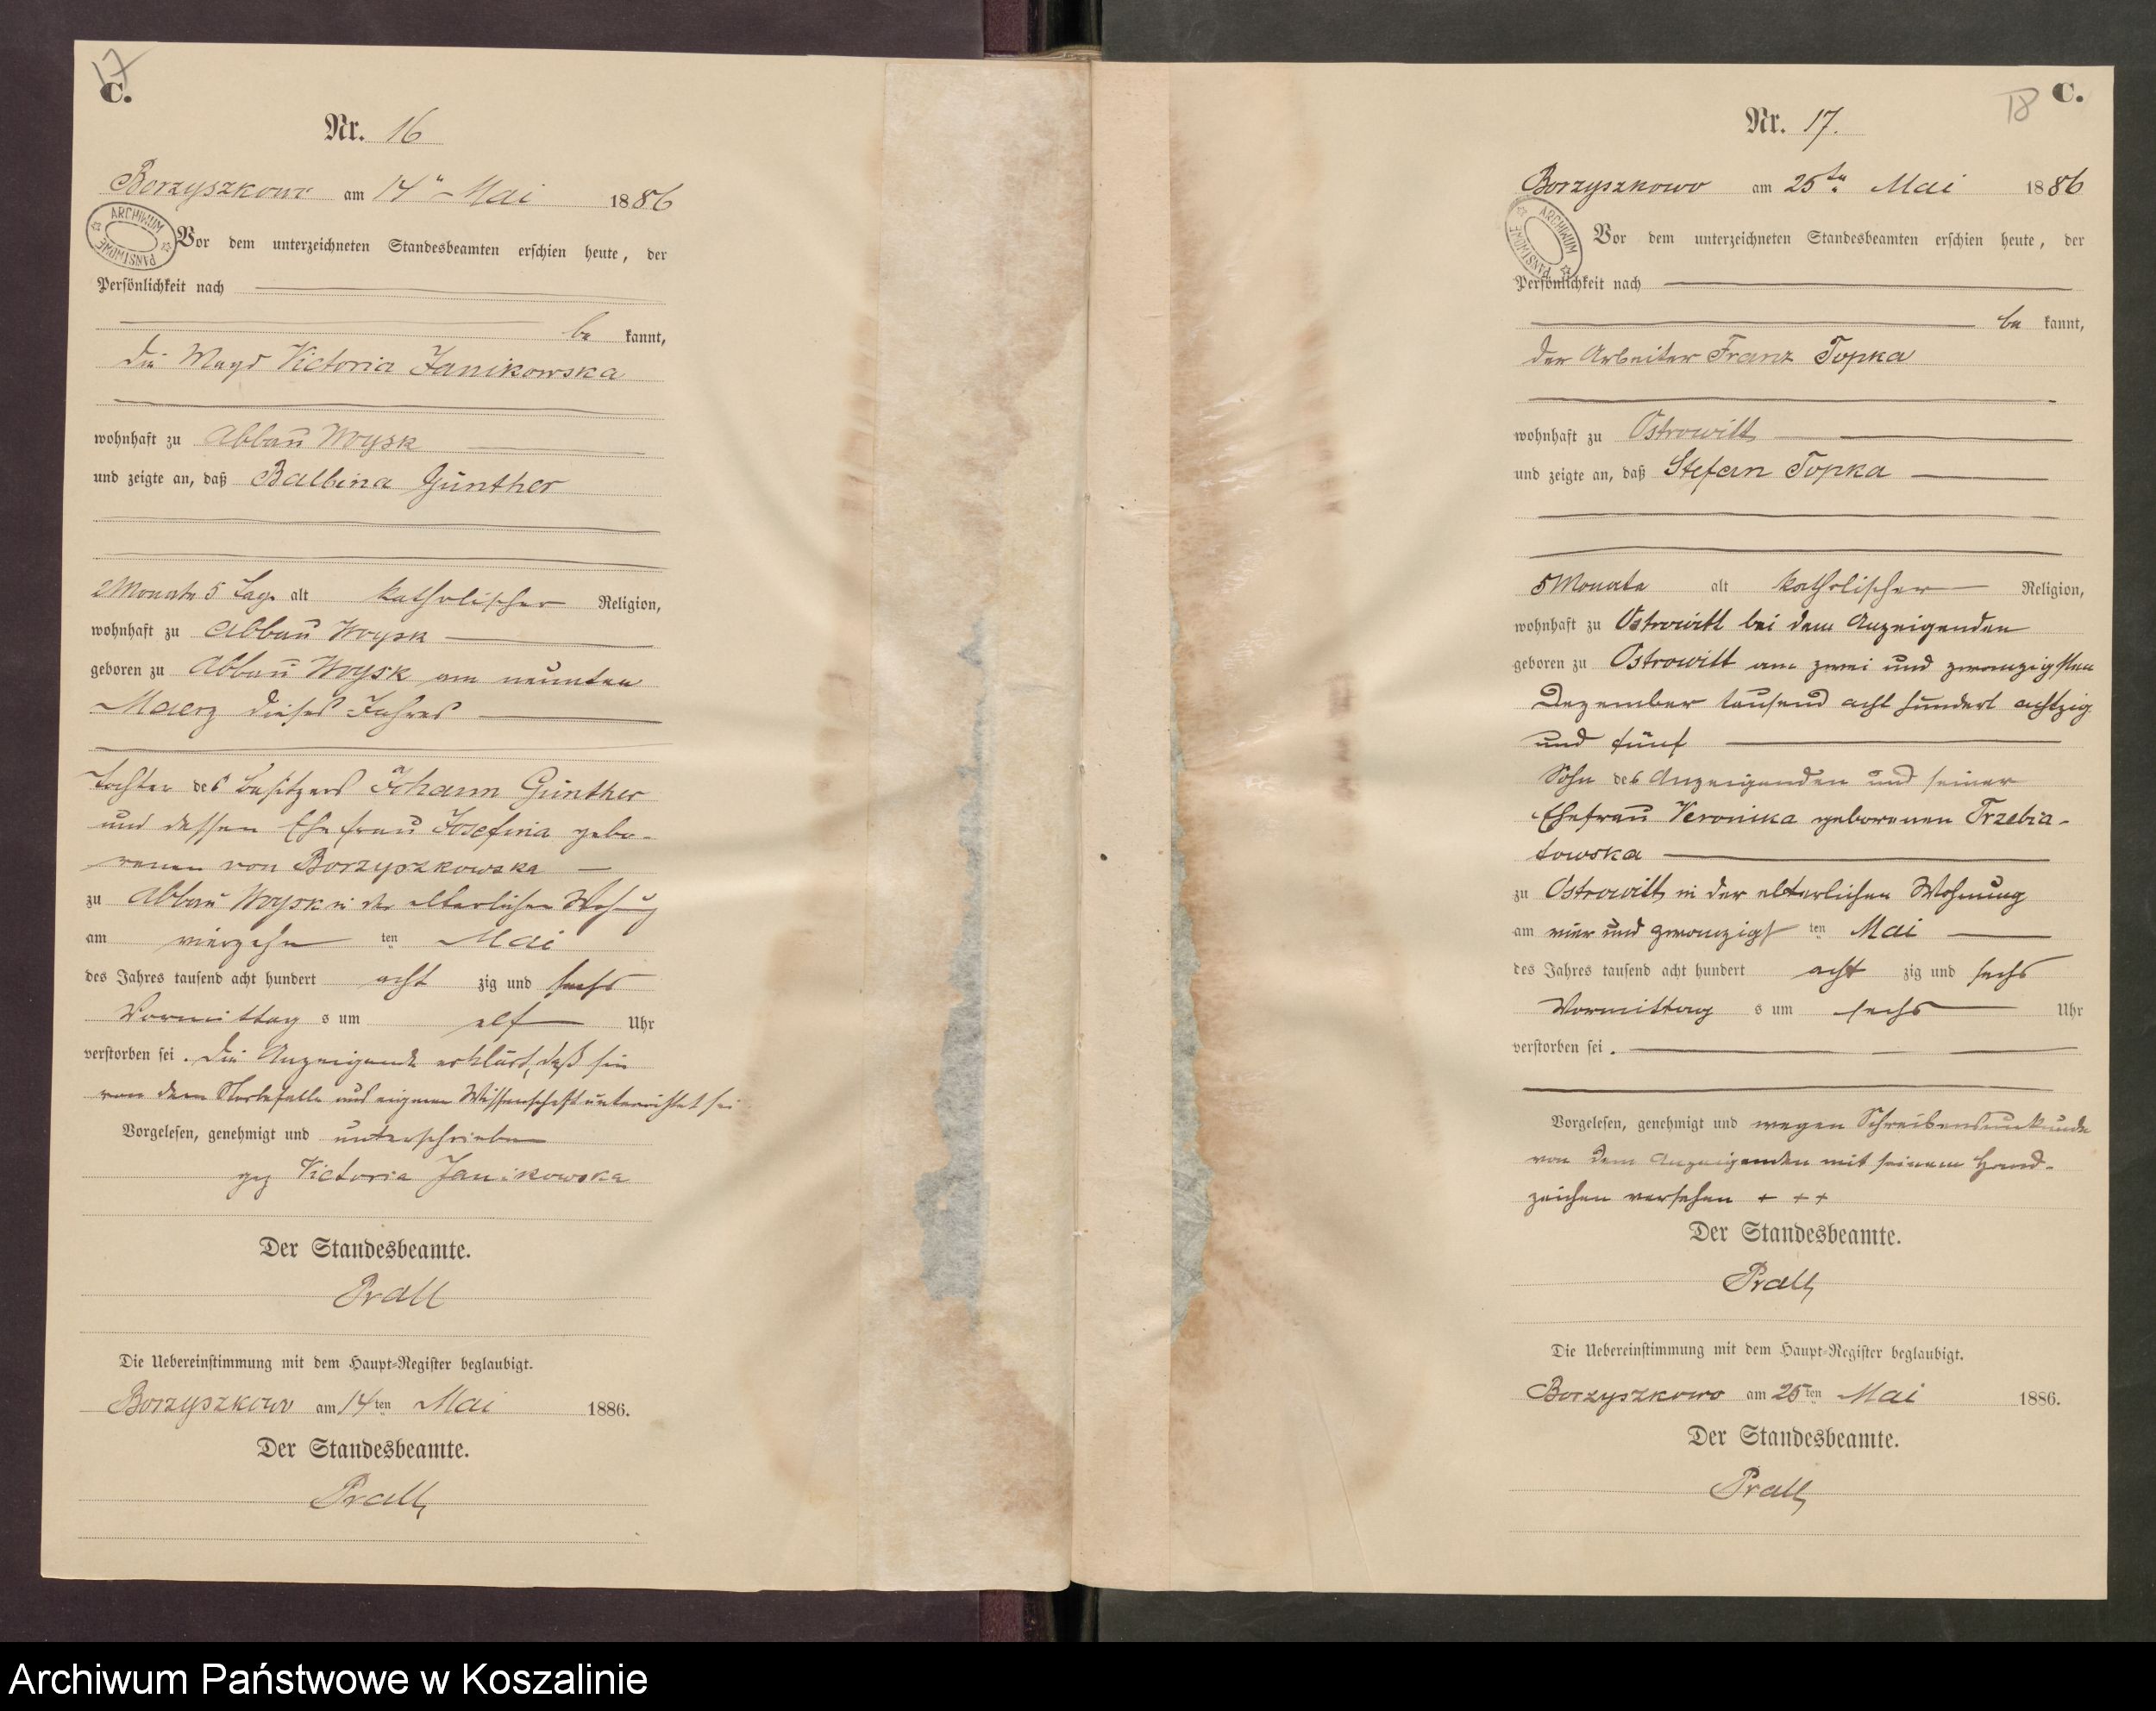 17
C.
Nr. 16
Borzyszkowo am 14ten Mai 1886
ARCHIWUM PAŃSTWOWE
Vor dem unterzeichneten Standesbeamten erschien heute, der
Persönlichkeit nach
be kannt,
die Magd Victoria Janikowska
wohnhaft zu Abbau Woysk
und zeigte an, daß Balbina Günther
2 Monate 5 Tage alt katholischer Religion,
wohnhaft zu Abbau Woysk
geboren zu Abbau Woysk am neunten
Maerz dieses Jahres
Tochter des Besitzers Johann Günther
und dessen Ehefrau Josefina gebo-
renen von Borzyszkowska
zu Abbau Woysk in der elterlichen Wohnung
am vierzehn ten Mai
des Jahres tausend acht hundert acht zig und sechs
Vormittag s um elf Uhr
verstorben sei. Die Anzeigende erklärt, daß sie
von dem Sterbefalle aus eigener Wissenschaft unterrichtet sei
Vorgelesen, genehmigt und unterschrieben
gez Victoria Janikowska
Der Standesbeamte.
Prall
Die Uebereinstimmung mit dem Haupt-Register beglaubigt.
Borzyszkowo am 14ten Mai 1886.
Der Standesbeamte.
Prall
18
C.
Nr. 17.
Borzyszkowo am 25ten Mai 1886
ARCHIWUM PAŃSTWOWE
Vor dem unterzeichneten Standesbeamten erschien heute, der
Persönlichkeit nach
be kannt,
der Arbeiter Franz Topka
wohnhaft zu Ostrowitt
und zeigte an, daß Stefan Topka
5 Monate alt katholischer Religion,
wohnhaft zu Ostrowitt bei dem Anzeigenden
geboren zu Ostrowitt am zwei und zwanzigsten
Dezember tausend acht hundert achtzig
und fünf
Sohn des Anzeigenden und seiner
Ehefrau Veronika geborenen Trzebia-
towska
zu Ostrowitt in der elterlichen Wohnung
am vier und zwanzigst ten Mai
des Jahres tausend acht hundert acht zig und sechs
Vormittag s um sechs Uhr
verstorben sei.
Vorgelesen, genehmigt und wegen Schreibensunkunde
von dem Anzeigenden mit seinem Hand-
zeichen versehen + + +
Der Standesbeamte.
Prall
Die Uebereinstimmung mit dem Haupt-Register beglaubigt.
Borzyszkowo am 25ten Mai 1886.
Der Standesbeamte.
Prall
Archiwum Państwowe w Koszalinie